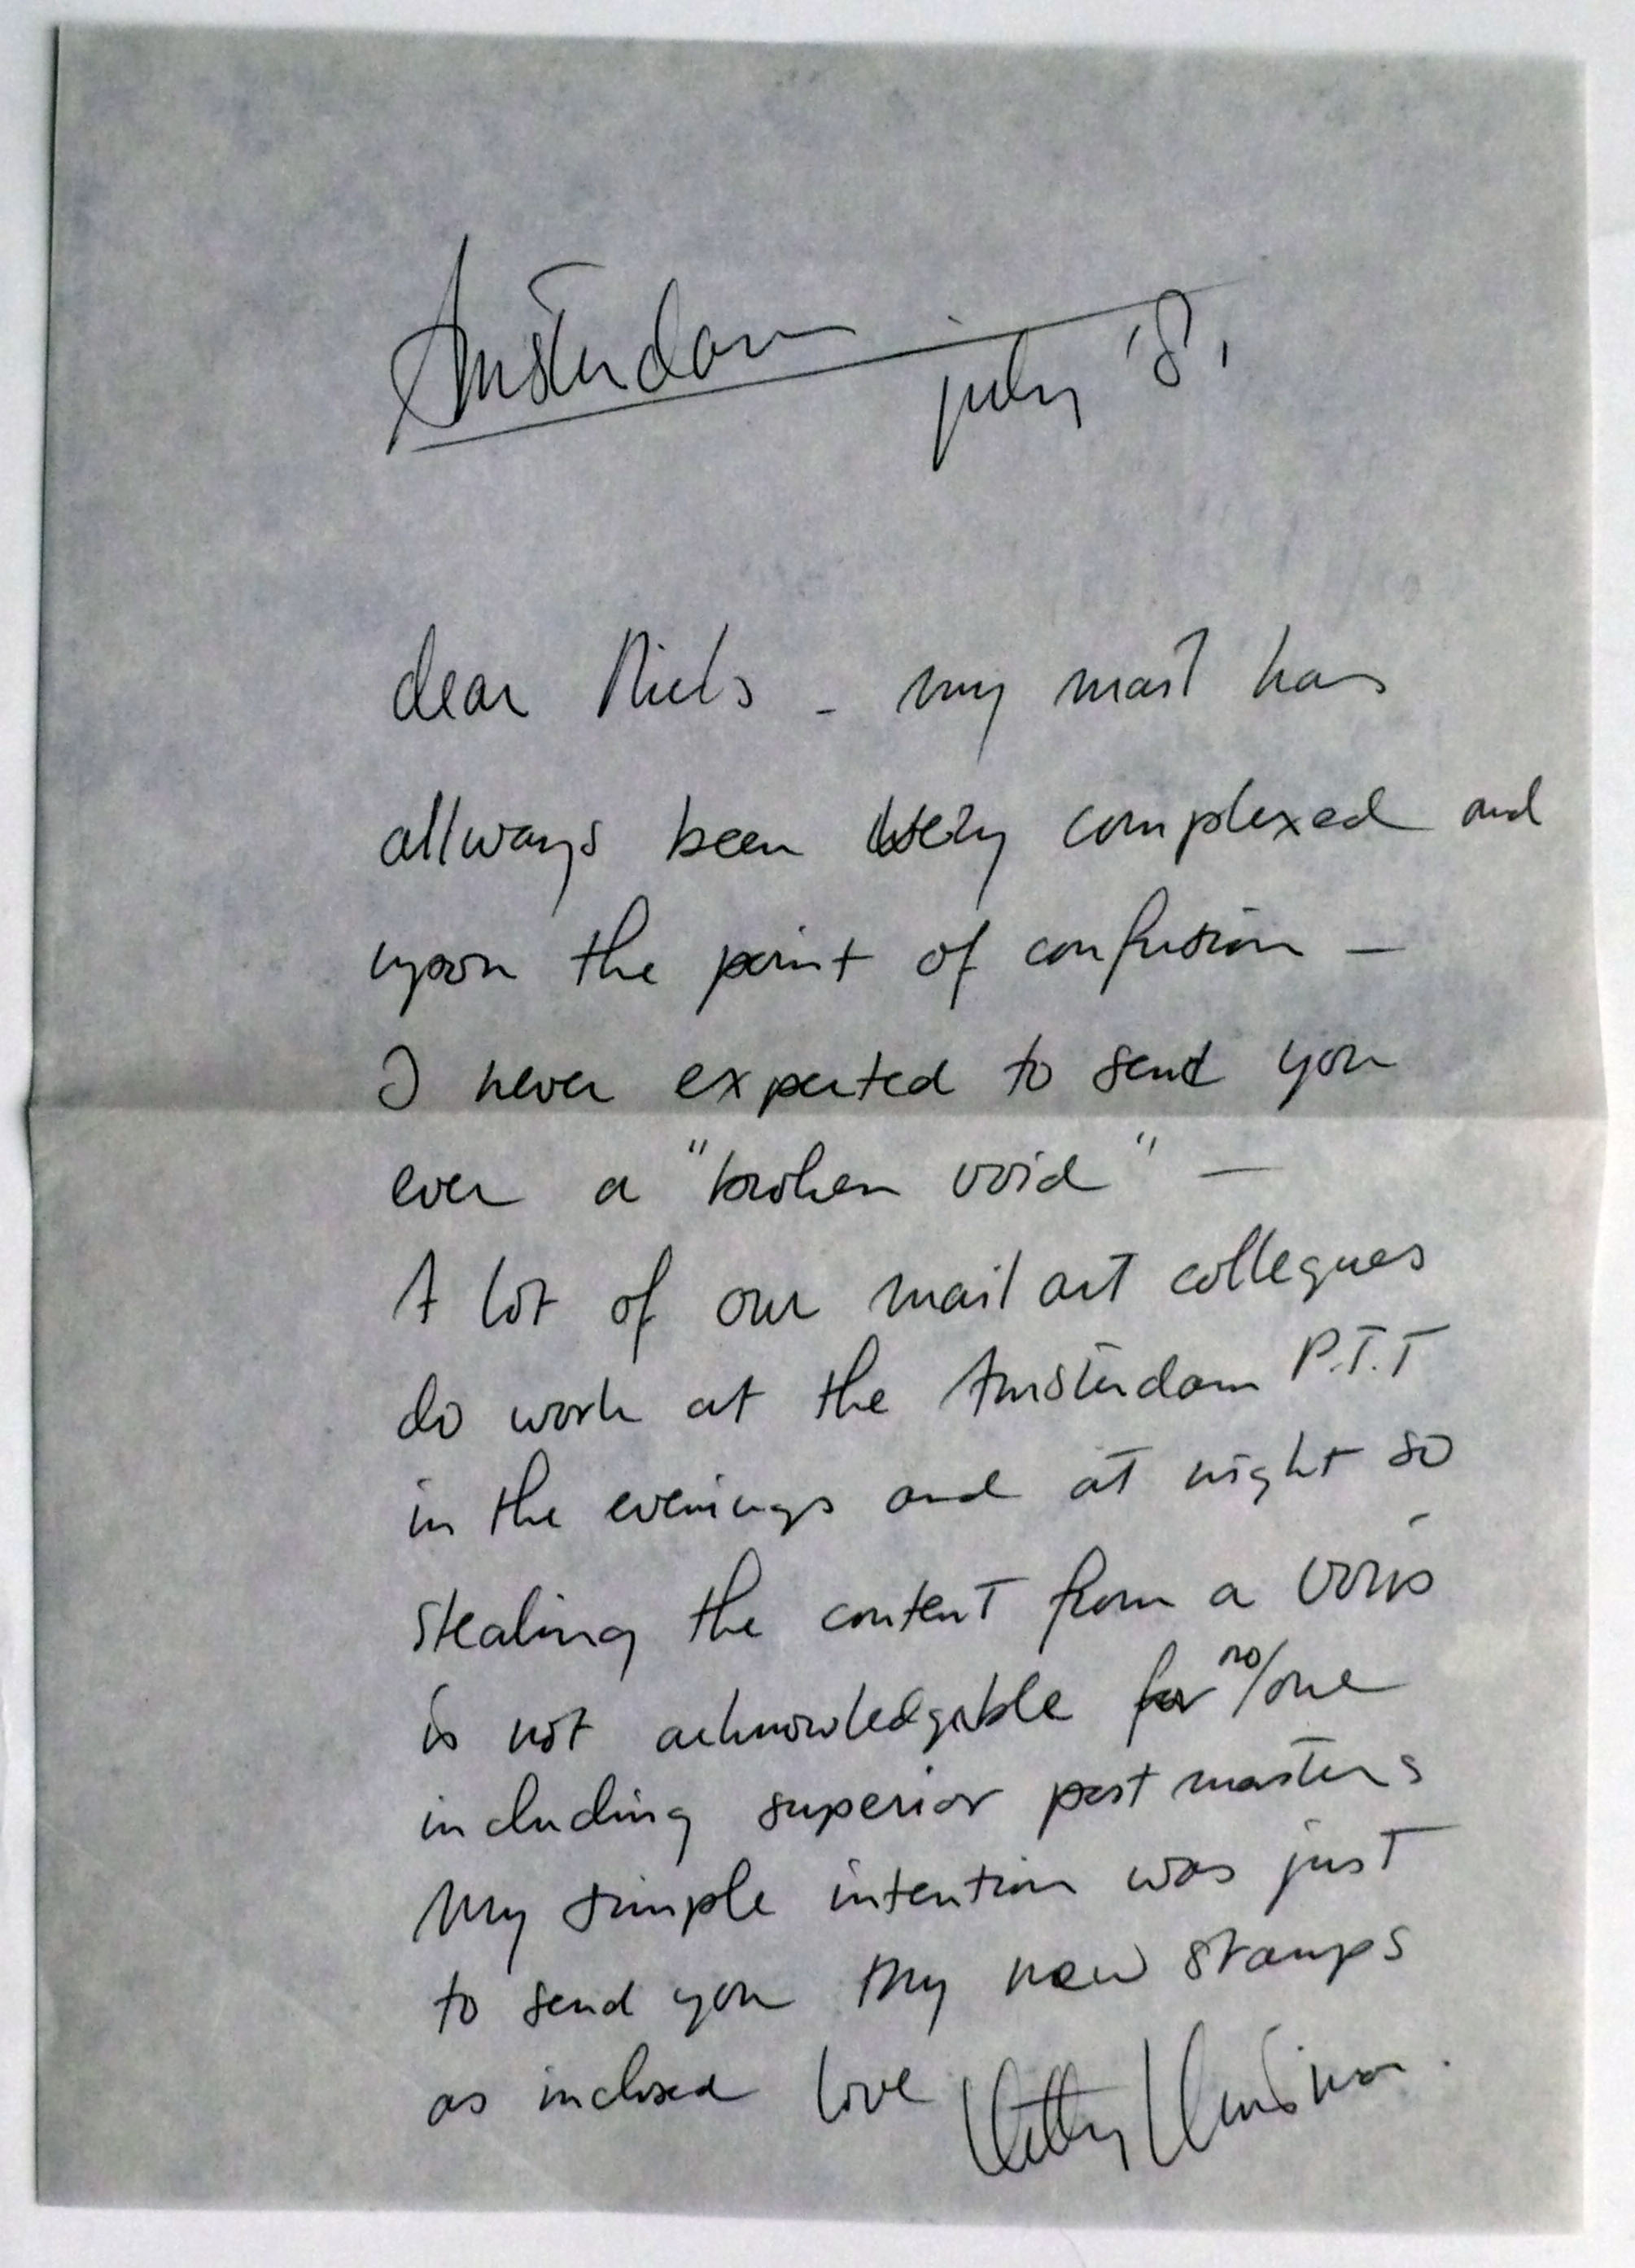 Amsterdam
july '81
dear Niels - my mail has
allways been very complexed and
upon the point of confusion —
I never expected to send you
ever a "broken void" —
A lot of our mail art collegues
do work at the Amsterdam P.T.T
in the evenings and at night so
stealing the content from a
is not acknowledgable for no/one
including superior post masters
My simple intention was just
to send you my new stamps
as inclosed love